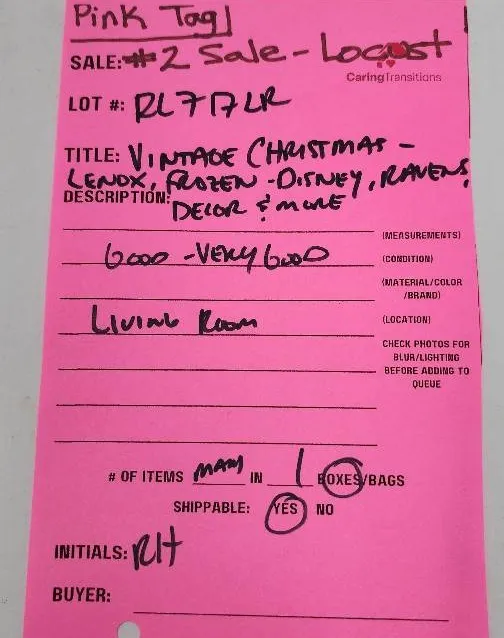 Pink Tag
SALE: #2 Sale - Locust
CaringTransitions
LOT #: RL717LR
TITLE: VINTAGE CHRISTMAS -
LENOX, FROZEN - DISNEY, RAVENS,
DESCRIPTION: DECOR & MORE
(MEASUREMENTS)
GOOD - VERY GOOD (CONDITION)
(MATERIAL/COLOR
/BRAND)
LIVING ROOM (LOCATION)
CHECK PHOTOS FOR
BLUR/LIGHTING
BEFORE ADDING TO
QUEUE
# OF ITEMS MANY IN 1 BOXES/BAGS
SHIPPABLE: YES NO
INITIALS: RH
BUYER: